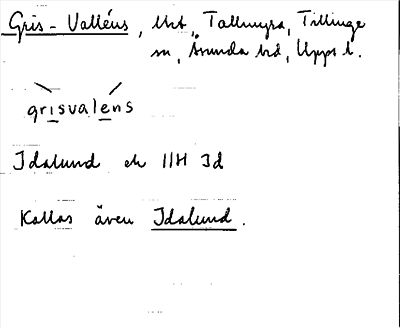 Gris-Valléns, lht, Tallmyra, Tillinge
sn, Åsunda hd, Upps l.
grisvalens
Idalund ek 11H Id
Kallas även Idalund.